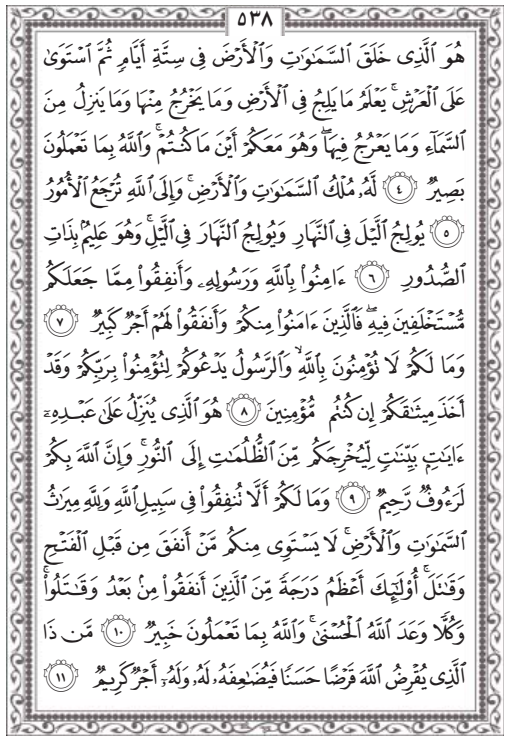 ٥٣٨
هُوَ ٱلَّذِى خَلَقَ ٱلسَّمَٰوَٰتِ وَٱلْأَرْضَ فِى سِتَّةِ أَيَّامٍ ثُمَّ ٱسْتَوَىٰ
عَلَى ٱلْعَرْشِ ۚ يَعْلَمُ مَا يَلِجُ فِى ٱلْأَرْضِ وَمَا يَخْرُجُ مِنْهَا وَمَا يَنزِلُ مِنَ
ٱلسَّمَآءِ وَمَا يَعْرُجُ فِيهَا ۖ وَهُوَ مَعَكُمْ أَيْنَ مَا كُنتُمْ ۚ وَٱللَّهُ بِمَا تَعْمَلُونَ
بَصِيرٌ ٤ لَّهُۥ مُلْكُ ٱلسَّمَٰوَٰتِ وَٱلْأَرْضِ ۚ وَإِلَى ٱللَّهِ تُرْجَعُ ٱلْأُمُورُ
٥ يُولِجُ ٱلَّيْلَ فِى ٱلنَّهَارِ وَيُولِجُ ٱلنَّهَارَ فِى ٱلَّيْلِ ۚ وَهُوَ عَلِيمٌۢ بِذَاتِ
ٱلصُّدُورِ ٦ ءَامِنُوا۟ بِٱللَّهِ وَرَسُولِهِۦ وَأَنفِقُوا۟ مِمَّا جَعَلَكُم
مُّسْتَخْلَفِينَ فِيهِ ۖ فَٱلَّذِينَ ءَامَنُوا۟ مِنكُمْ وَأَنفَقُوا۟ لَهُمْ أَجْرٌ كَبِيرٌ ٧
وَمَا لَكُمْ لَا تُؤْمِنُونَ بِٱللَّهِ ۙ وَٱلرَّسُولُ يَدْعُوكُمْ لِتُؤْمِنُوا۟ بِرَبِّكُمْ وَقَدْ
أَخَذَ مِيثَٰقَكُمْ إِن كُنتُم مُّؤْمِنِينَ ٨ هُوَ ٱلَّذِى يُنَزِّلُ عَلَىٰ عَبْدِهِۦٓ
ءَايَٰتٍۭ بَيِّنَٰتٍ لِّيُخْرِجَكُم مِّنَ ٱلظُّلُمَٰتِ إِلَى ٱلنُّورِ ۚ وَإِنَّ ٱللَّهَ بِكُمْ
لَرَءُوفٌ رَّحِيمٌ ٩ وَمَا لَكُمْ أَلَّا تُنفِقُوا۟ فِى سَبِيلِ ٱللَّهِ وَلِلَّهِ مِيرَٰثُ
ٱلسَّمَٰوَٰتِ وَٱلْأَرْضِ ۚ لَا يَسْتَوِى مِنكُم مَّنْ أَنفَقَ مِن قَبْلِ ٱلْفَتْحِ
وَقَٰتَلَ ۚ أُو۟لَٰٓئِكَ أَعْظَمُ دَرَجَةً مِّنَ ٱلَّذِينَ أَنفَقُوا۟ مِنۢ بَعْدُ وَقَٰتَلُوا۟ ۚ
وَكُلًّا وَعَدَ ٱللَّهُ ٱلْحُسْنَىٰ ۚ وَٱللَّهُ بِمَا تَعْمَلُونَ خَبِيرٌ ١٠ مَّن ذَا
ٱلَّذِى يُقْرِضُ ٱللَّهَ قَرْضًا حَسَنًا فَيُضَٰعِفَهُۥ لَهُۥ وَلَهُۥٓ أَجْرٌ كَرِيمٌ ١١